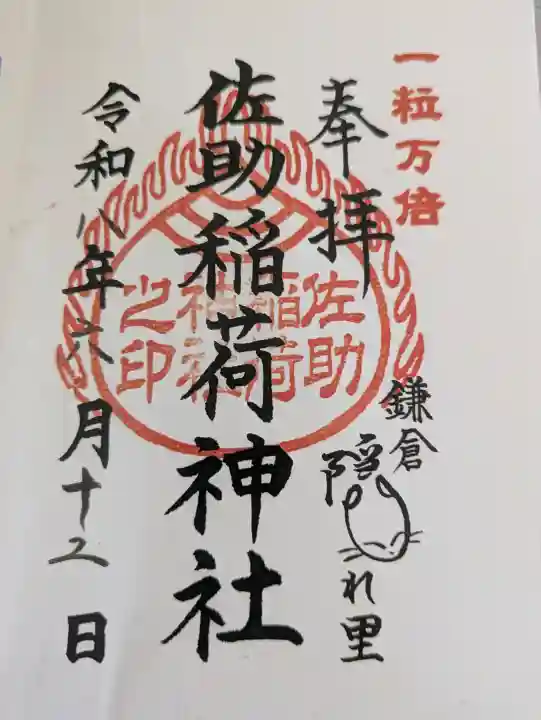 一粒万倍
奉拝
鎌倉
隠れ里
佐助稲荷神社
佐助
稲荷
神社
之印
令和八年六月十二日